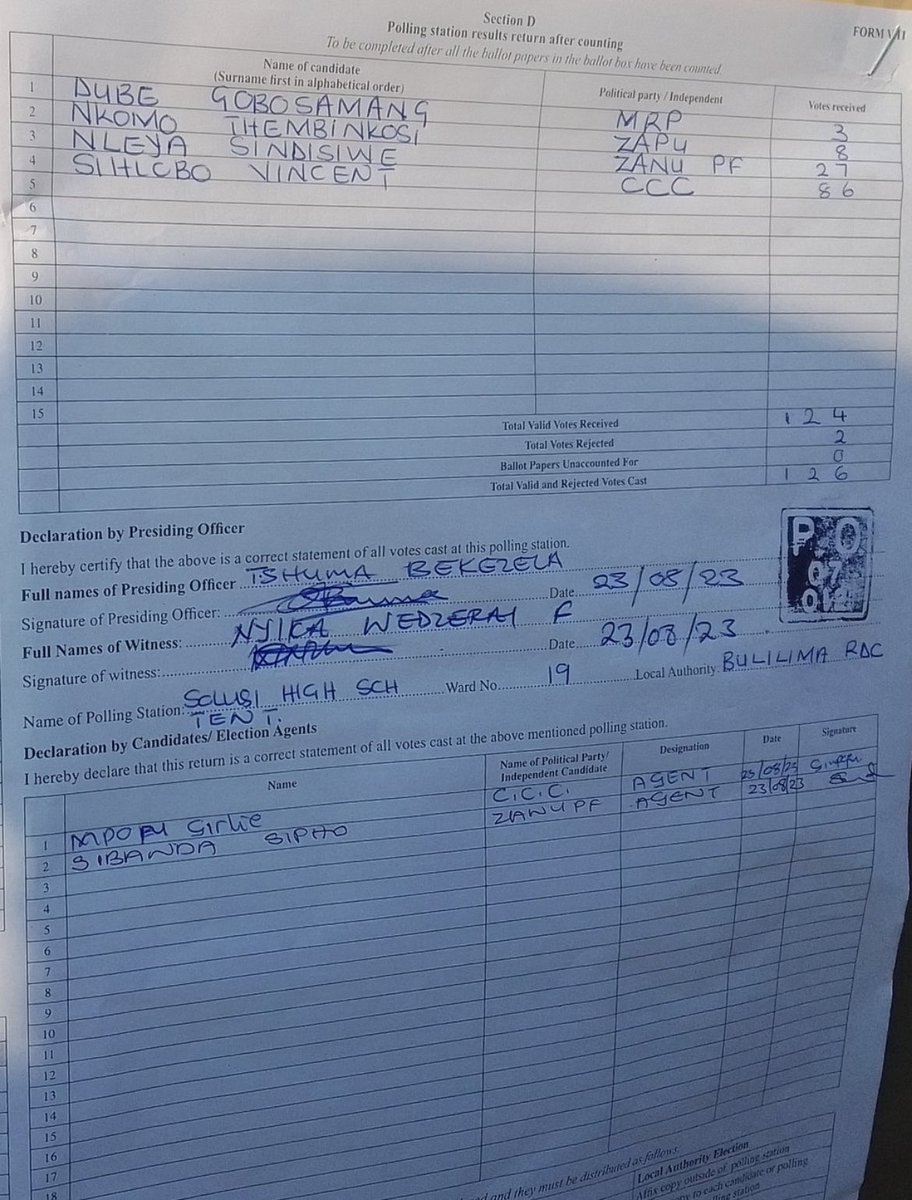 Section D
FORM V.11
Polling station results return after counting
To be completed after all the ballot papers in the ballot box have been counted.
Name of candidate
(Surname first in alphabetical order)
Political party / Independent
Votes received
1 DUBE GOBOSAMANG MRP 3
2 NKOMO THEMBINKOSI ZAPU 8
3 NLEYA SINDISIWE ZANU PF 27
4 SIHLOBO VINCENT CCC 86
5
6
7
8
9
10
11
12
13
14
15
Total Valid Votes Received 124
Total Votes Rejected 2
Ballot Papers Unaccounted For 0
Total Valid and Rejected Votes Cast 126
Declaration by Presiding Officer
I hereby certify that the above is a correct statement of all votes cast at this polling station.
Full names of Presiding Officer TSHUMA BEKEZELA
Signature of Presiding Officer: Date 23/08/23
Full Names of Witness: NJIKA WEDZERAI F
Signature of witness: Date 23/08/23
Name of Polling Station: SOLUSI HIGH SCH TENT. Ward No. 19 Local Authority BULILIMA RDC
P.O
07
Declaration by Candidates/ Election Agents
I hereby declare that this return is a correct statement of all votes cast at the above mentioned polling station.
Name
Name of Political Party/ Independent Candidate
Designation
Date
Signature
1 MPOFU Girlie C.C.C. AGENT 23/08/23
2 SIBANDA SIPHO ZANU PF AGENT 23/08/23
3
4
5
6
7
8
9
10
11
12
13
14
15
16
17
18
and they must be distributed as follows
Local Authority Election
Affix copy outside of polling station
copy to each candidate or polling
station